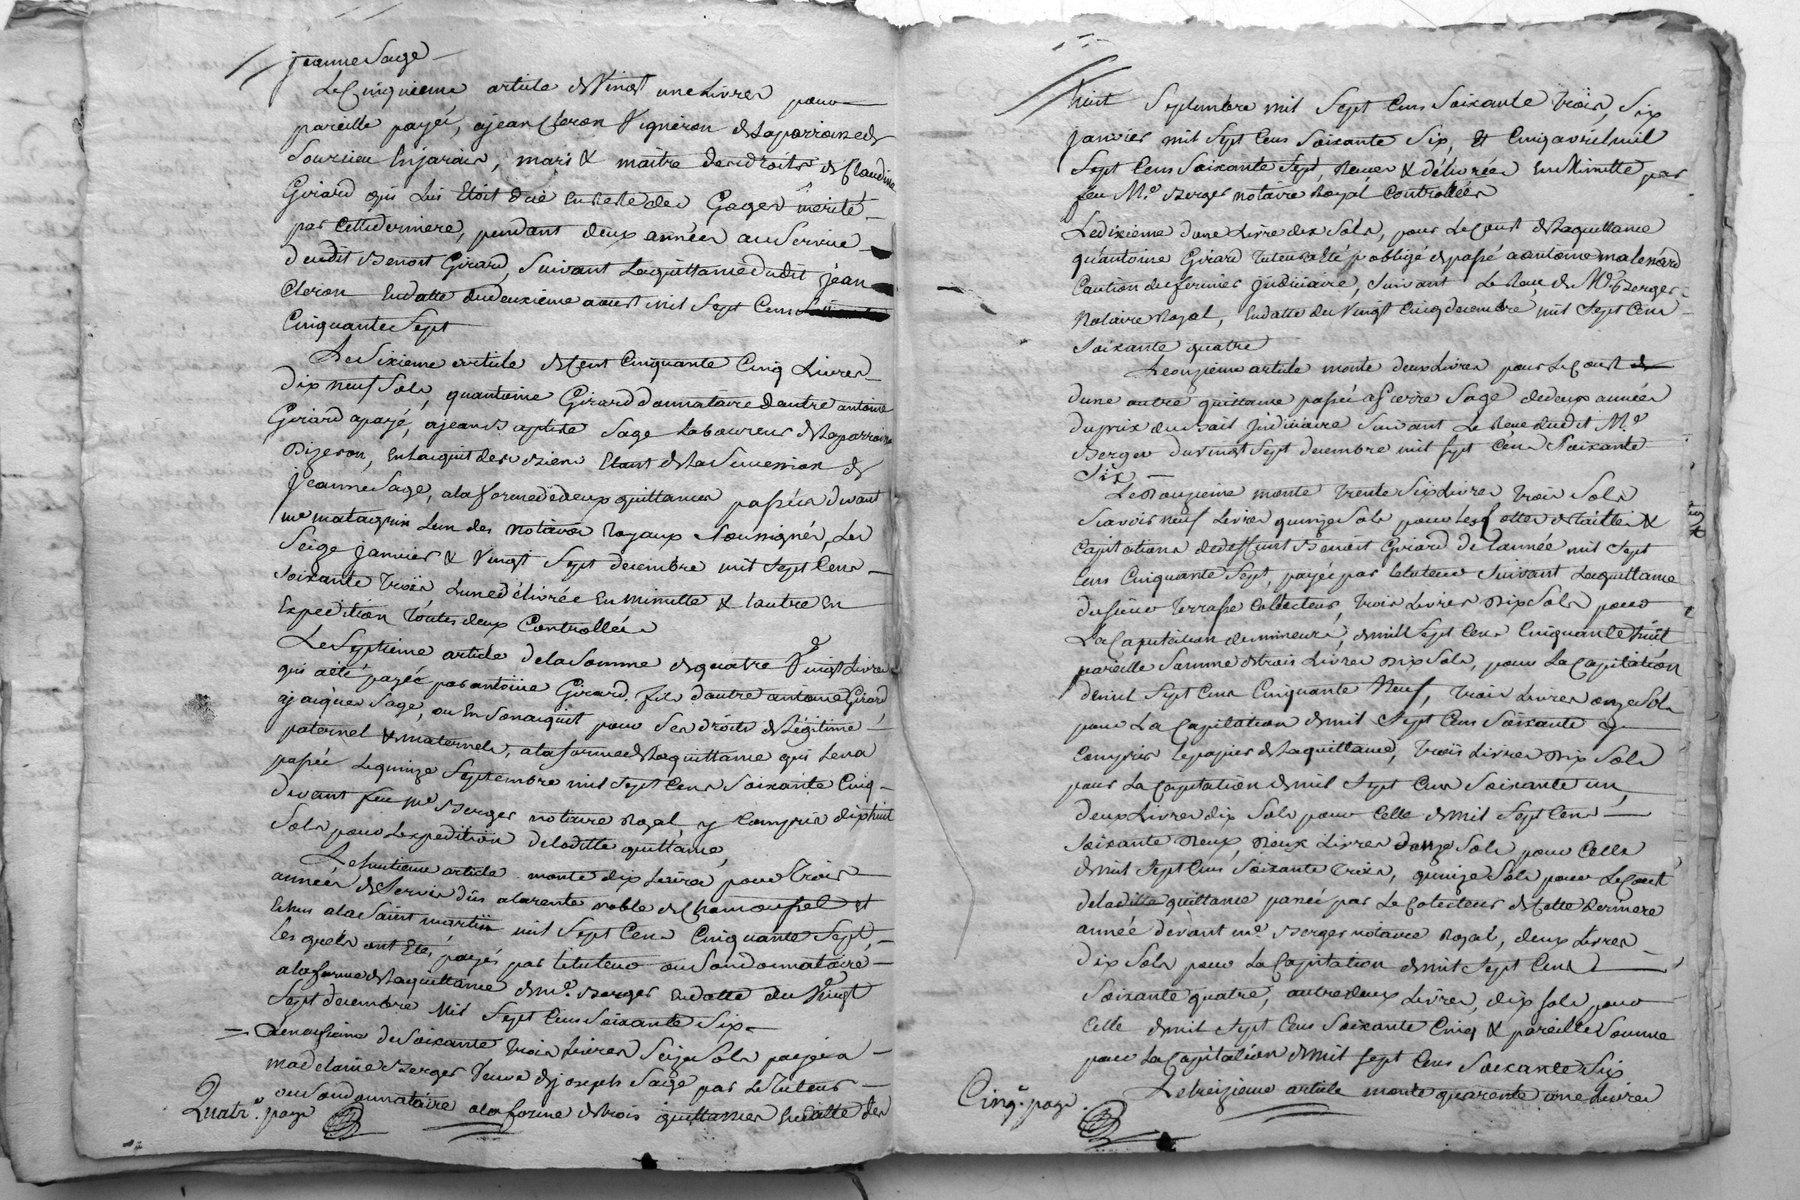 jeanne Sage
Le Cinquieme article de Vingt une Livres pour
pareille payée, a jean Cleron Vigneron de la parroisse de
Soursieu En jarais, mari & maitre des droits de Claudine
Girard qui Lui Etoit düe En reste des Gages mérité
par Cette derniere, pendant deux années au Service
dudit Benoit Girard, Suivant La quittance dudit jean
Cleron En datte du deuxieme aoust mil Sept Cens
Cinquante Sept
Le Sixieme article de Cent Cinquante Cinq Livres
dix neuf Sols, quantoine Girard donnataire d'autre antoine
Girard a payé, a jean Baptiste Sage Laboureur de la parroisse
Dizeron, En l'acquit des Biens Etant de la Succession de
jeanne Sage, a la forme de deux quittances passées devant
me matagrin L'un des notaires Royaux Soussignés, Les
Seize janvier & Vingt Sept decembre mil Sept Cens
soixante Trois, L'une délivrée En minutte & l'autre En
Expedition Toutes deux Controllées
Le Septieme article de la Somme de quatre Vingt Livres
qui a été payée par antoine Girard fils d'autre antoine Girard,
a jacques Sage, ou En Son acquit pour Ses droits de Légitime
paternel & maternels, a la forme de la quittance qui Sera
passée Le quinze Septembre mil Sept Cens Soixante Cinq
devant feu me Berger notaire Royal y Compris dixhuit
Sols pour L'expedition de ladite quittance,
Le huitieme article monte dix Livres pour Trois
années de Servis dûs a la rente noble de Chamousset et
Echus a la Saint martin mil Sept Cens Cinquante Sept,
Les quels ont Eté payés par le tuteur ou Son donnataire
a la forme de la quittance de me. Berger En datte du Vingt
Sept decembre Mil Sept Cens Soixante Six
Le neufieme de Soixante Trois Livres Seize Sols payée a
madelaine Berger Veuve de joseph Sage par Le Tuteur
ou Son donnataire a la forme de trois quittances En datte des
Quatr.e page
huit Septembre mil Sept Cens Soixante Trois, Six
janvier mil Sept Cens Soixante Six, & Cinq avril mil
Sept Cens Soixante Sept, Reçues & délivrées En Minutte par
feu Me. Berger notaire Royal Controllées
Le dixieme d'une Livre dix Sols, pour Le Coust de la quittance
qu'antoine Girard Tuteur a été obligé de passé a antoine malenard
Caution du fermier judiciaire, Suivant Le Reçu de Me Berger
Notaire Royal, En datte du Vingt Cinq decembre mil Sept Cens
Soixante quatre
Le onzieme article monte deux Livres pour Le Coust
d'une autre quittance passée a Pierre Sage de deux années
du prix du bail judiciaire Suivant Le Reçu dudit Me.
Berger du vingt Sept decembre mil Sept Cens Soixante
Six
Le Douzieme monte Trente Six Livres Trois Sols
Sçavoir neuf Livres quinze Sols pour les Cottes de Tailles &
Capitations de deffunt Benoit Girard de L'année mil Sept
Cens Cinquante Sept, payée par le tuteur Suivant La quittance
du Sieur Terrasse Collecteur, Trois Livres Dix Sols pour
La Capitation des mineurs, de mil Sept Cens Cinquante huit
pareille Somme de trois Livres Dix Sols, pour La Capitation
de mil Sept Cens Cinquante Neuf, Trois Livres onze Sols
pour La Capitation de mil Sept Cens Soixante y
Compris Le papier de la quittance, Trois Livres Dix Sols
pour La Capitation de mil Sept Cens Soixante un,
deux Livres dix Sols pour Celle de mil Sept Cens
Soixante Deux, Deux Livres Sols pour Celle
de mil Sept Cens Soixante Trois, quinze Sols pour Le Coust
de ladite quittance passée par Le Colecteur de Cette derniere
année devant me Berger notaire Royal, deux Livres
Dix Sols pour La Capitation de mil Sept Cens
Soixante quatre, autres deux Livres, dix sols pour
Celle de mil Sept Cens Soixante Cinq & pareille Somme
pour La Capitation de mil Sept Cens Soixante Six
Le treizieme article monte quarente une Livres
Cinq.e page